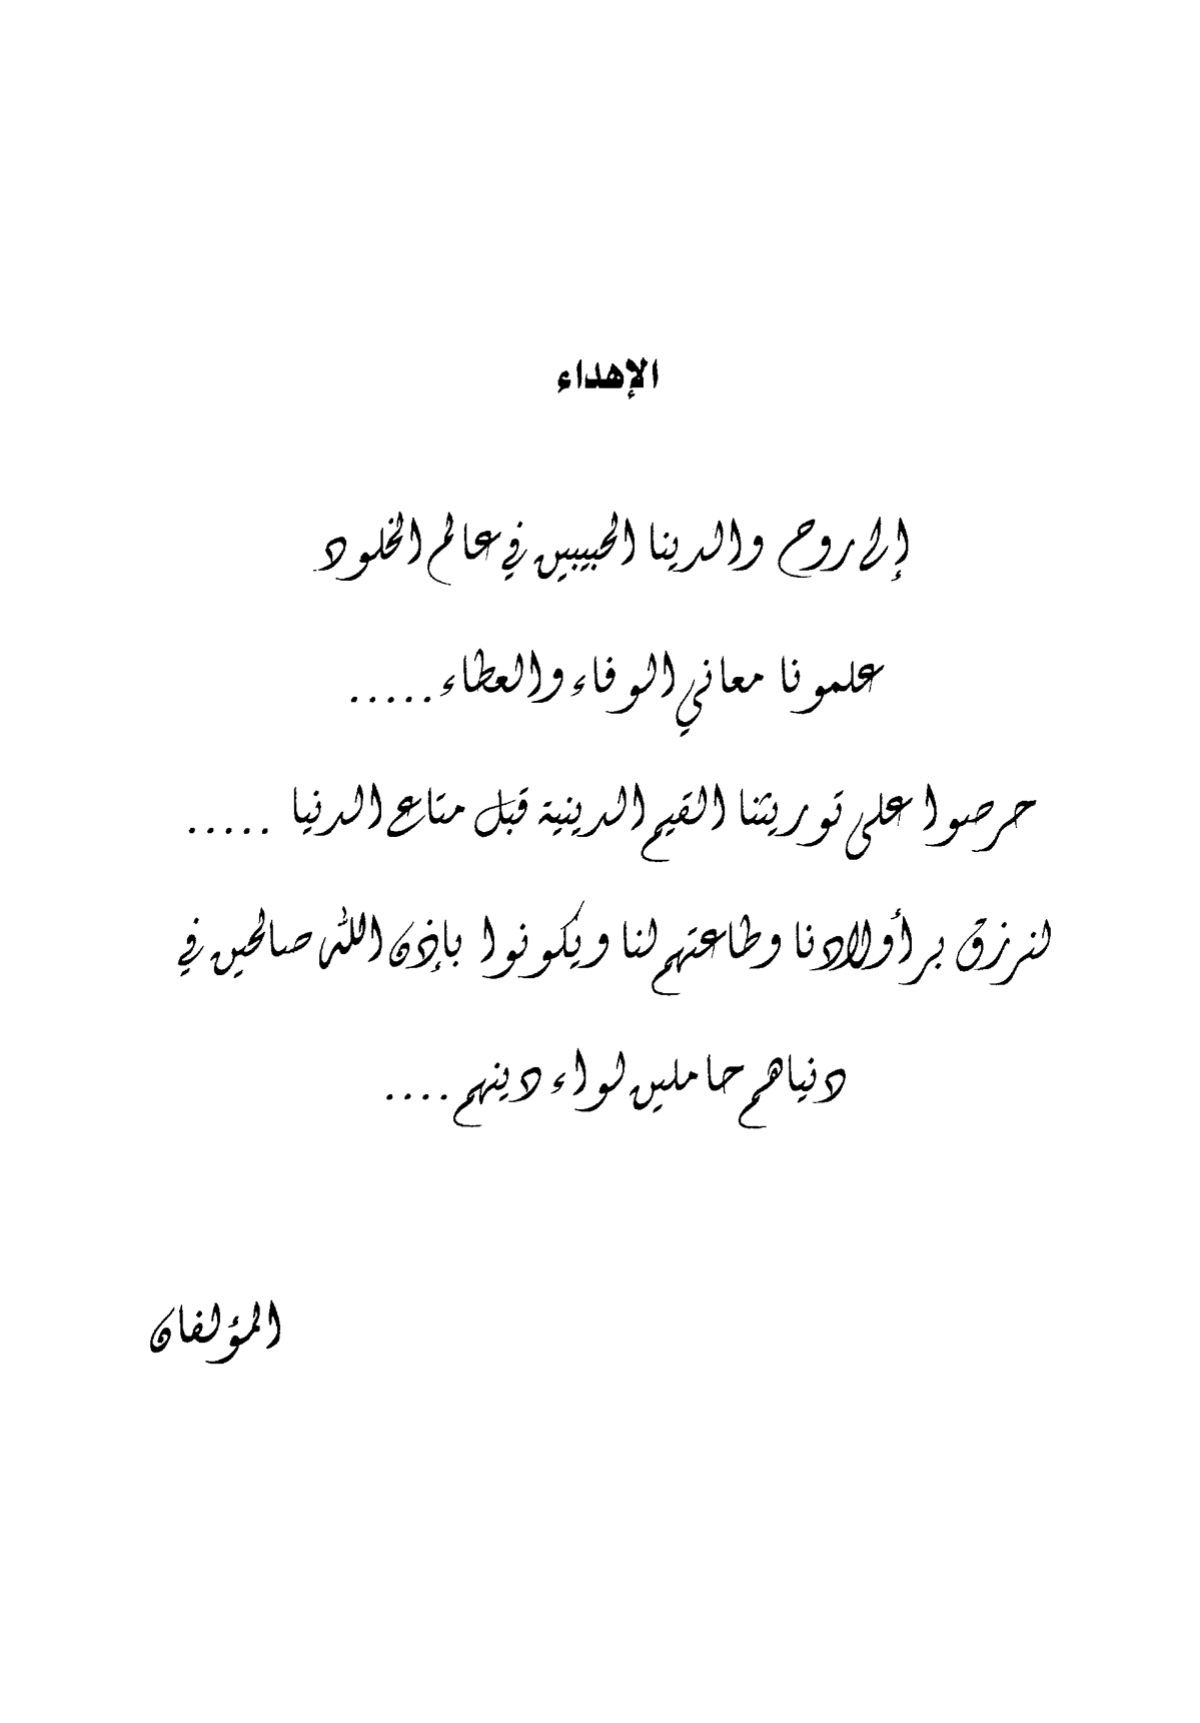 الإهداء
إلى روح والدينا الحبيبين في عالم الخلود
علمونا معاني الوفاء والعطاء.....
حرصوا على توريثنا القيم الدينية قبل متاع الدنيا .....
لنرزق بر أولادنا وطاعتهم لنا ويكونوا بإذن الله صالحين في
دنياهم حاملين لواء دينهم ....
المؤلفان